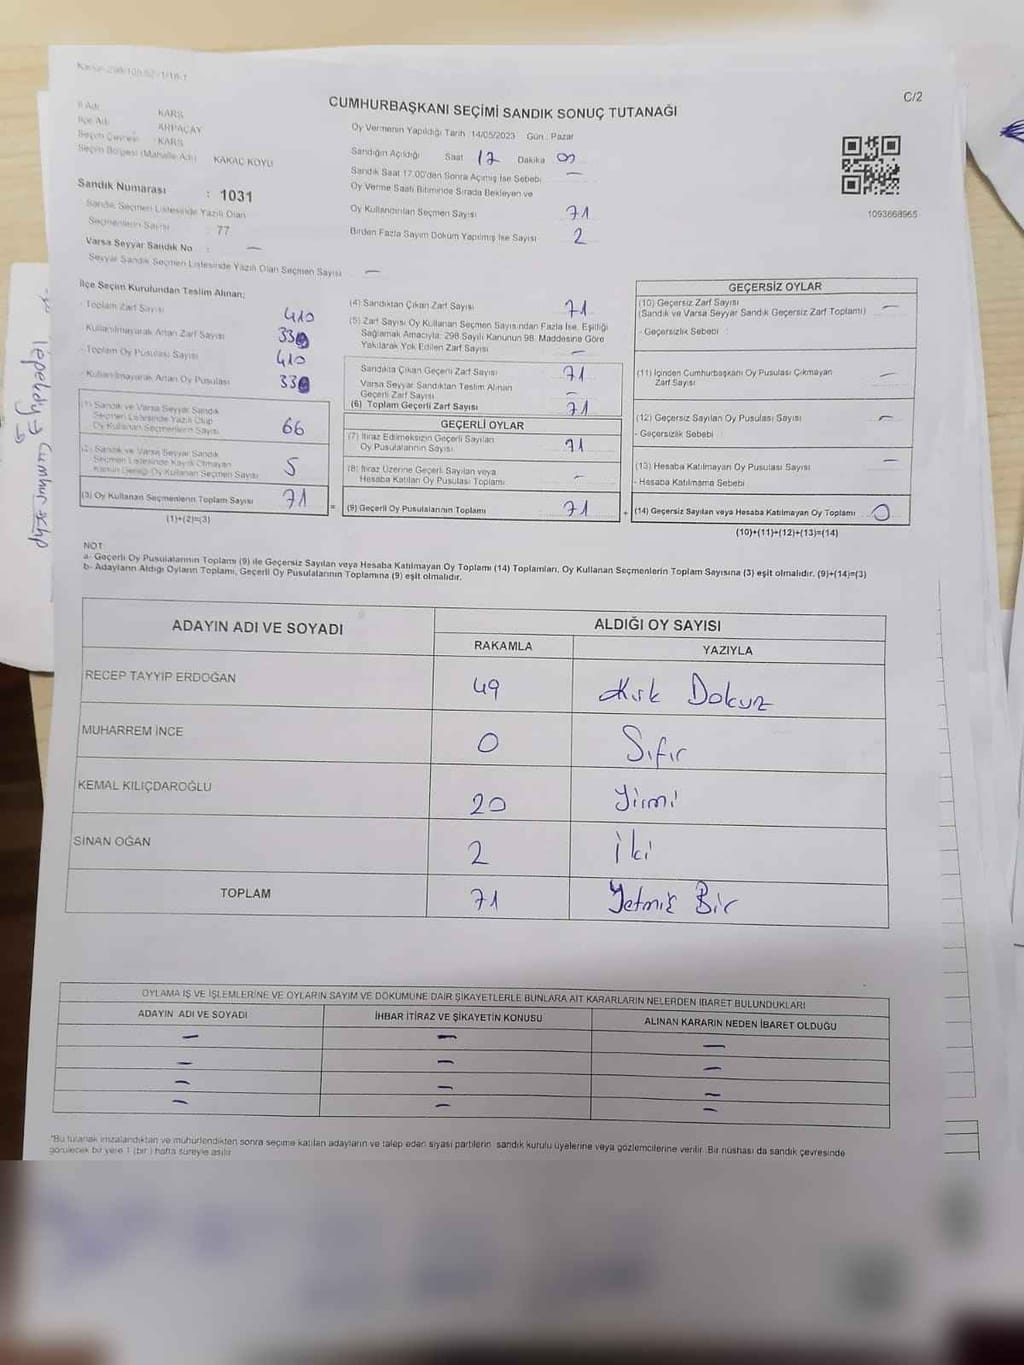 C/2
CUMHURBAŞKANI SEÇİMİ SANDIK SONUÇ TUTANAĞI
İl Adı : KARS
İlçe Adı : ARPAÇAY
Seçim Çevresi : KARS
Seçim Bölgesi (Mahalle Adı) KAKAÇ KÖYÜ
Sandık Numarası : 1031
Sandık Seçmen Listesinde Yazılı Olan
Seçmenlerin Sayısı : 77
Varsa Seyyar Sandık No : —
Seyyar Sandık Seçmen Listesinde Yazılı Olan Seçmen Sayısı —
Oy Vermenin Yapıldığı Tarih : 14/05/2023 Gün : Pazar
Sandığın Açıldığı Saat 17 Dakika
Sandık Saat 17.00'den Sonra Açılmış İse Sebebi : —
Oy Verme Saati Bitiminde Sırada Bekleyen ve
Oy Kullandırılan Seçmen Sayısı 71
Birden Fazla Sayım Döküm Yapılmış İse Sayısı 2
1093668965
İlçe Seçim Kurulundan Teslim Alınan;
- Toplam Zarf Sayısı 410
- Kullanılmayarak Artan Zarf Sayısı
- Toplam Oy Pusulası Sayısı 410
- Kullanılmayarak Artan Oy Pusulası
(1) Sandık ve Varsa Seyyar Sandık
Seçmen Listesinde Yazılı Olup
Oy Kullanan Seçmenlerin Sayısı 66
(2) Sandık ve Varsa Seyyar Sandık
Seçmen Listesinde Kayıtlı Olmayan
Kanun Gereği Oy Kullanan Seçmen Sayısı 5
(3) Oy Kullanan Seçmenlerin Toplam Sayısı 71
(1)+(2)=(3)
(4) Sandıktan Çıkan Zarf Sayısı 71
(5) Zarf Sayısı Oy Kullanan Seçmen Sayısından Fazla İse, Eşitliği
Sağlamak Amacıyla; 298 Sayılı Kanunun 98. Maddesine Göre
Yakılarak Yok Edilen Zarf Sayısı —
Sandıkta Çıkan Geçerli Zarf Sayısı 71
Varsa Seyyar Sandıktan Teslim Alınan
Geçerli Zarf Sayısı —
(6) Toplam Geçerli Zarf Sayısı 71
GEÇERLİ OYLAR
(7) İtiraz Edilmeksizin Geçerli Sayılan
Oy Pusulalarının Sayısı 71
(8) İtiraz Üzerine Geçerli Sayılan veya
Hesaba Katılan Oy Pusulası Toplamı —
= (9) Geçerli Oy Pusulalarının Toplamı 71
GEÇERSİZ OYLAR
(10) Geçersiz Zarf Sayısı —
(Sandık ve Varsa Seyyar Sandık Geçersiz Zarf Toplamı)
- Geçersizlik Sebebi :
(11) İçinden Cumhurbaşkanı Oy Pusulası Çıkmayan
Zarf Sayısı —
(12) Geçersiz Sayılan Oy Pusulası Sayısı —
- Geçersizlik Sebebi :
(13) Hesaba Katılmayan Oy Pusulası Sayısı —
- Hesaba Katılmama Sebebi
+ (14) Geçersiz Sayılan veya Hesaba Katılmayan Oy Toplamı 0
(10)+(11)+(12)+(13)=(14)
NOT:
a- Geçerli Oy Pusulalarının Toplamı (9) ile Geçersiz Sayılan veya Hesaba Katılmayan Oy Toplamı (14) Toplamları, Oy Kullanan Seçmenlerin Toplam Sayısına (3) eşit olmalıdır. (9)+(14)=(3)
b- Adayların Aldığı Oyların Toplamı, Geçerli Oy Pusulalarının Toplamına (9) eşit olmalıdır.
ADAYIN ADI VE SOYADI ALDIĞI OY SAYISI
RAKAMLA YAZIYLA
RECEP TAYYİP ERDOĞAN 49 Kırk Dokuz
MUHARREM İNCE 0 Sıfır
KEMAL KILIÇDAROĞLU 20 Yirmi
SİNAN OĞAN 2 İki
TOPLAM 71 Yetmiş Bir
OYLAMA İŞ VE İŞLEMLERİNE VE OYLARIN SAYIM VE DÖKÜMÜNE DAİR ŞİKAYETLERLE BUNLARA AİT KARARLARIN NELERDEN İBARET BULUNDUKLARI
ADAYIN ADI VE SOYADI İHBAR İTİRAZ VE ŞİKAYETİN KONUSU ALINAN KARARIN NEDEN İBARET OLDUĞU
— — —
— — —
— — —
— — —
*Bu tutanak imzalandıktan ve mühürlendikten sonra seçime katılan adayların ve talep eden siyasi partilerin sandık kurulu üyelerine veya gözlemcilerine verilir. Bir nüshası da sandık çevresinde
görülecek bir yere 1 (bir) hafta süreyle asılır.